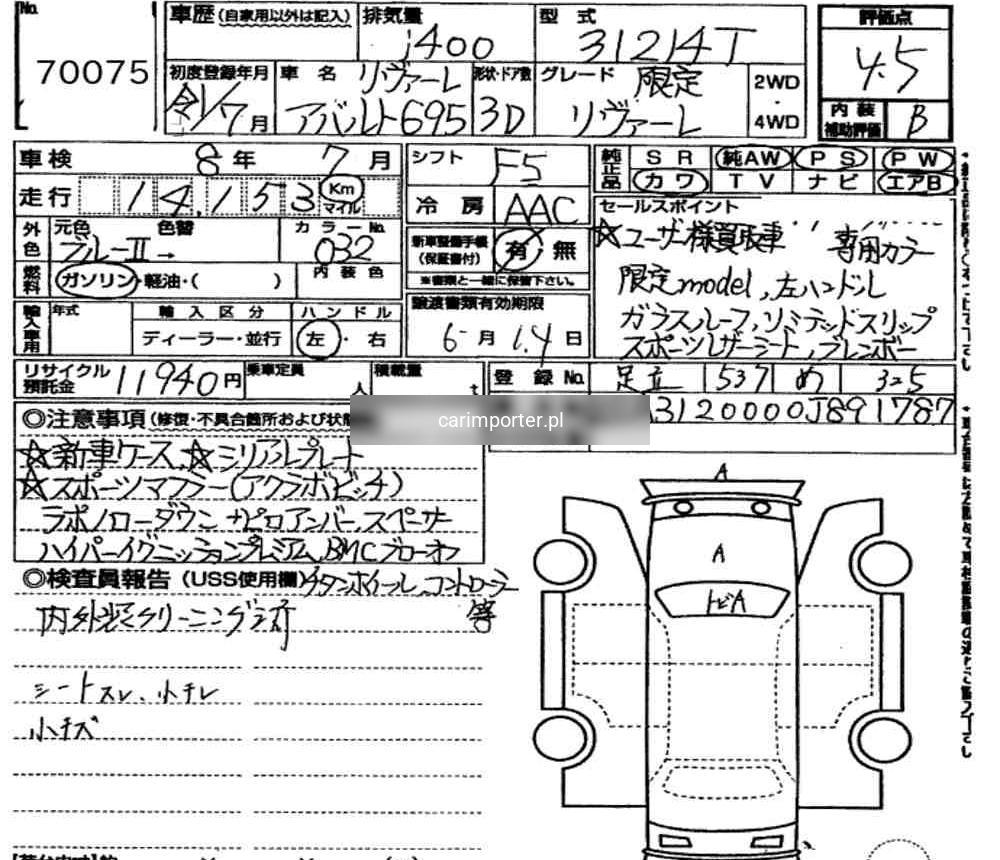 No.
70075
車歴(自家用以外は記入)
排気量
1400
型式
31214T
評価点
4.5
初度登録年月
令1/7月
車名
リヴァーレ
アバルト695
形状・ドア数
3D
グレード
限定
リヴァーレ
2WD
・
4WD
内装
補助評価
B
車検
8年 7月
走行
14,153
Km
マイル
シフト
F5
冷房
AAC
純正品
SR 純AW PS PW
カワ TV ナビ エアB
外色
元色
ブルーII→
色替
カラーNo.
032
燃料
ガソリン・軽油・( )
内装色
新車整備手帳
(保証書付)
有・無
※書類と一緒に保管下さい。
セールスポイント
☆ユーザー様買取車 専用カラー
限定model,左ハンドル
ガラスルーフ,リミテッドスリップ
スポーツレザーシート,ブレンボー
輸入車用
年式
輸入区分
ディーラー・並行
ハンドル
左・右
譲渡書類有効期限
6月14日
リサイクル
預託金
11940円
乗車定員
人
積載量
t
登録No.
足立 537 め 325
3120000J891787
carimporter.pl
◎注意事項(修復・不具合箇所および状態
☆新車ケース,☆シリアルプレート
☆スポーツマフラー(アクラポビッチ)
ラポノローダウン ナピロアンバー,スペーサー
ハイパーイグニッションプレミアム,BMCブローオフ
◎検査員報告(USS使用欄)
チタンホイール,コントローラー
等
内外装クリーニング済
シートスレ、小チレ
小キズ
A
A
トビA